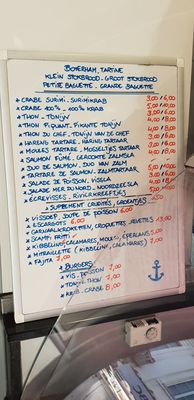 BOTERHAM, TARTINE
KLEIN STOKBROOD - GROOT STOKBROOD
PETITE BAGUETTE - GRANDE BAGUETTE
* CRABE SURIMI, SURIMIKRAB 3,00 / 6,00
* CRABE 100% - 100% KRAB
* THON - TONIJN
* THON PIQUANT, PIKANTE TONIJN 4,00 / 8,00
* THON DU CHEF, TONIJN VAN DE CHEF 4,00 / 8,00
* HARENG TARTARE, HARING TARTAAR
* MOULES TARTARE, MOSSELTJES TARTAAR 4,00 / 8,00
* SAUMON FUMÉ, GEROOKTE ZALM
* DUO DE SAUMON, DUO VAN ZALM
* TARTARE DE SAUMON, ZALMTARTAAR
* SALADE DE POISSON, VISSLA 4,00 / 8,00
* SALADE MER DU NORD, NOORDZEESLA
* ÉCREVISSES, RIVIERKREEFTJES
SUPPLEMENT CRUDITÉS, GROENTJES
* VISSOEP, SOUPE DE POISSON 6,00
* ESCARGOTS 6,00
* GARNAALKROKETTEN, CROQUETTES CREVETTES 13,00
* SCAMPI FRITTI
* KIBBELING, CALAMARES, MOULES, EPERLANS 5,00
* MITRAILLETTE (KIBBELING, CALAMARES) 7,00
* FAJITA 7,00
BURGERS
* VIS, POISSON 7,00
* TONIJN, THON 7,00
* KRAB, CRABE 8,00